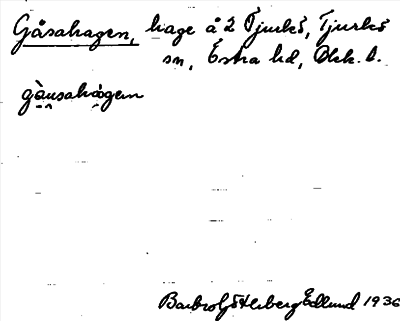 Gåsahagen, hage å 2 Tjurkö, Tjurkö
sn, Östra hd, Blek. l.
gåusahagen
Barbro Söderberg Edlund 1936